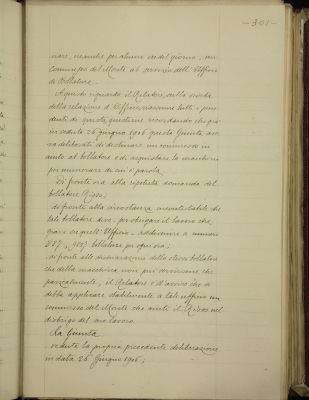 - 301 -
nare, neanche per alcune ore del giorno, un
commesso del Monte al servizio dell'Ufficio
di Bollatura.
A questo riguardo il Relatore, sulla scorta
della relazione d'Ufficio, riassume tutti i precedenti
di questa questione ricordando che già
in seduta 26 giugno 1906 questa Giunta aveva
deliberato di destinare un commesso in
aiuto al bollatore ed acquistare la macchina
per numerare di cui è parola.
Di fronte ora alla ripetuta domanda del
bollatore
di fronte alla circostanza incontestabile che
tale bollatore deve, per sbrigare il lavoro che
grava su quell'Ufficio, addivenire a numero
bollature per ogni ora;
di fronte alla dichiarazione dello stesso bollatore
che della macchina non può servirsene che
parzialmente, il Relatore è d'avviso che si
debba applicare stabilmente a tale ufficio un
commesso del Monte che aiuti il nel
disbrigo del suo lavoro.
La Giunta
veduta la propria precedente deliberazione
in data 26 Giugno 1906;